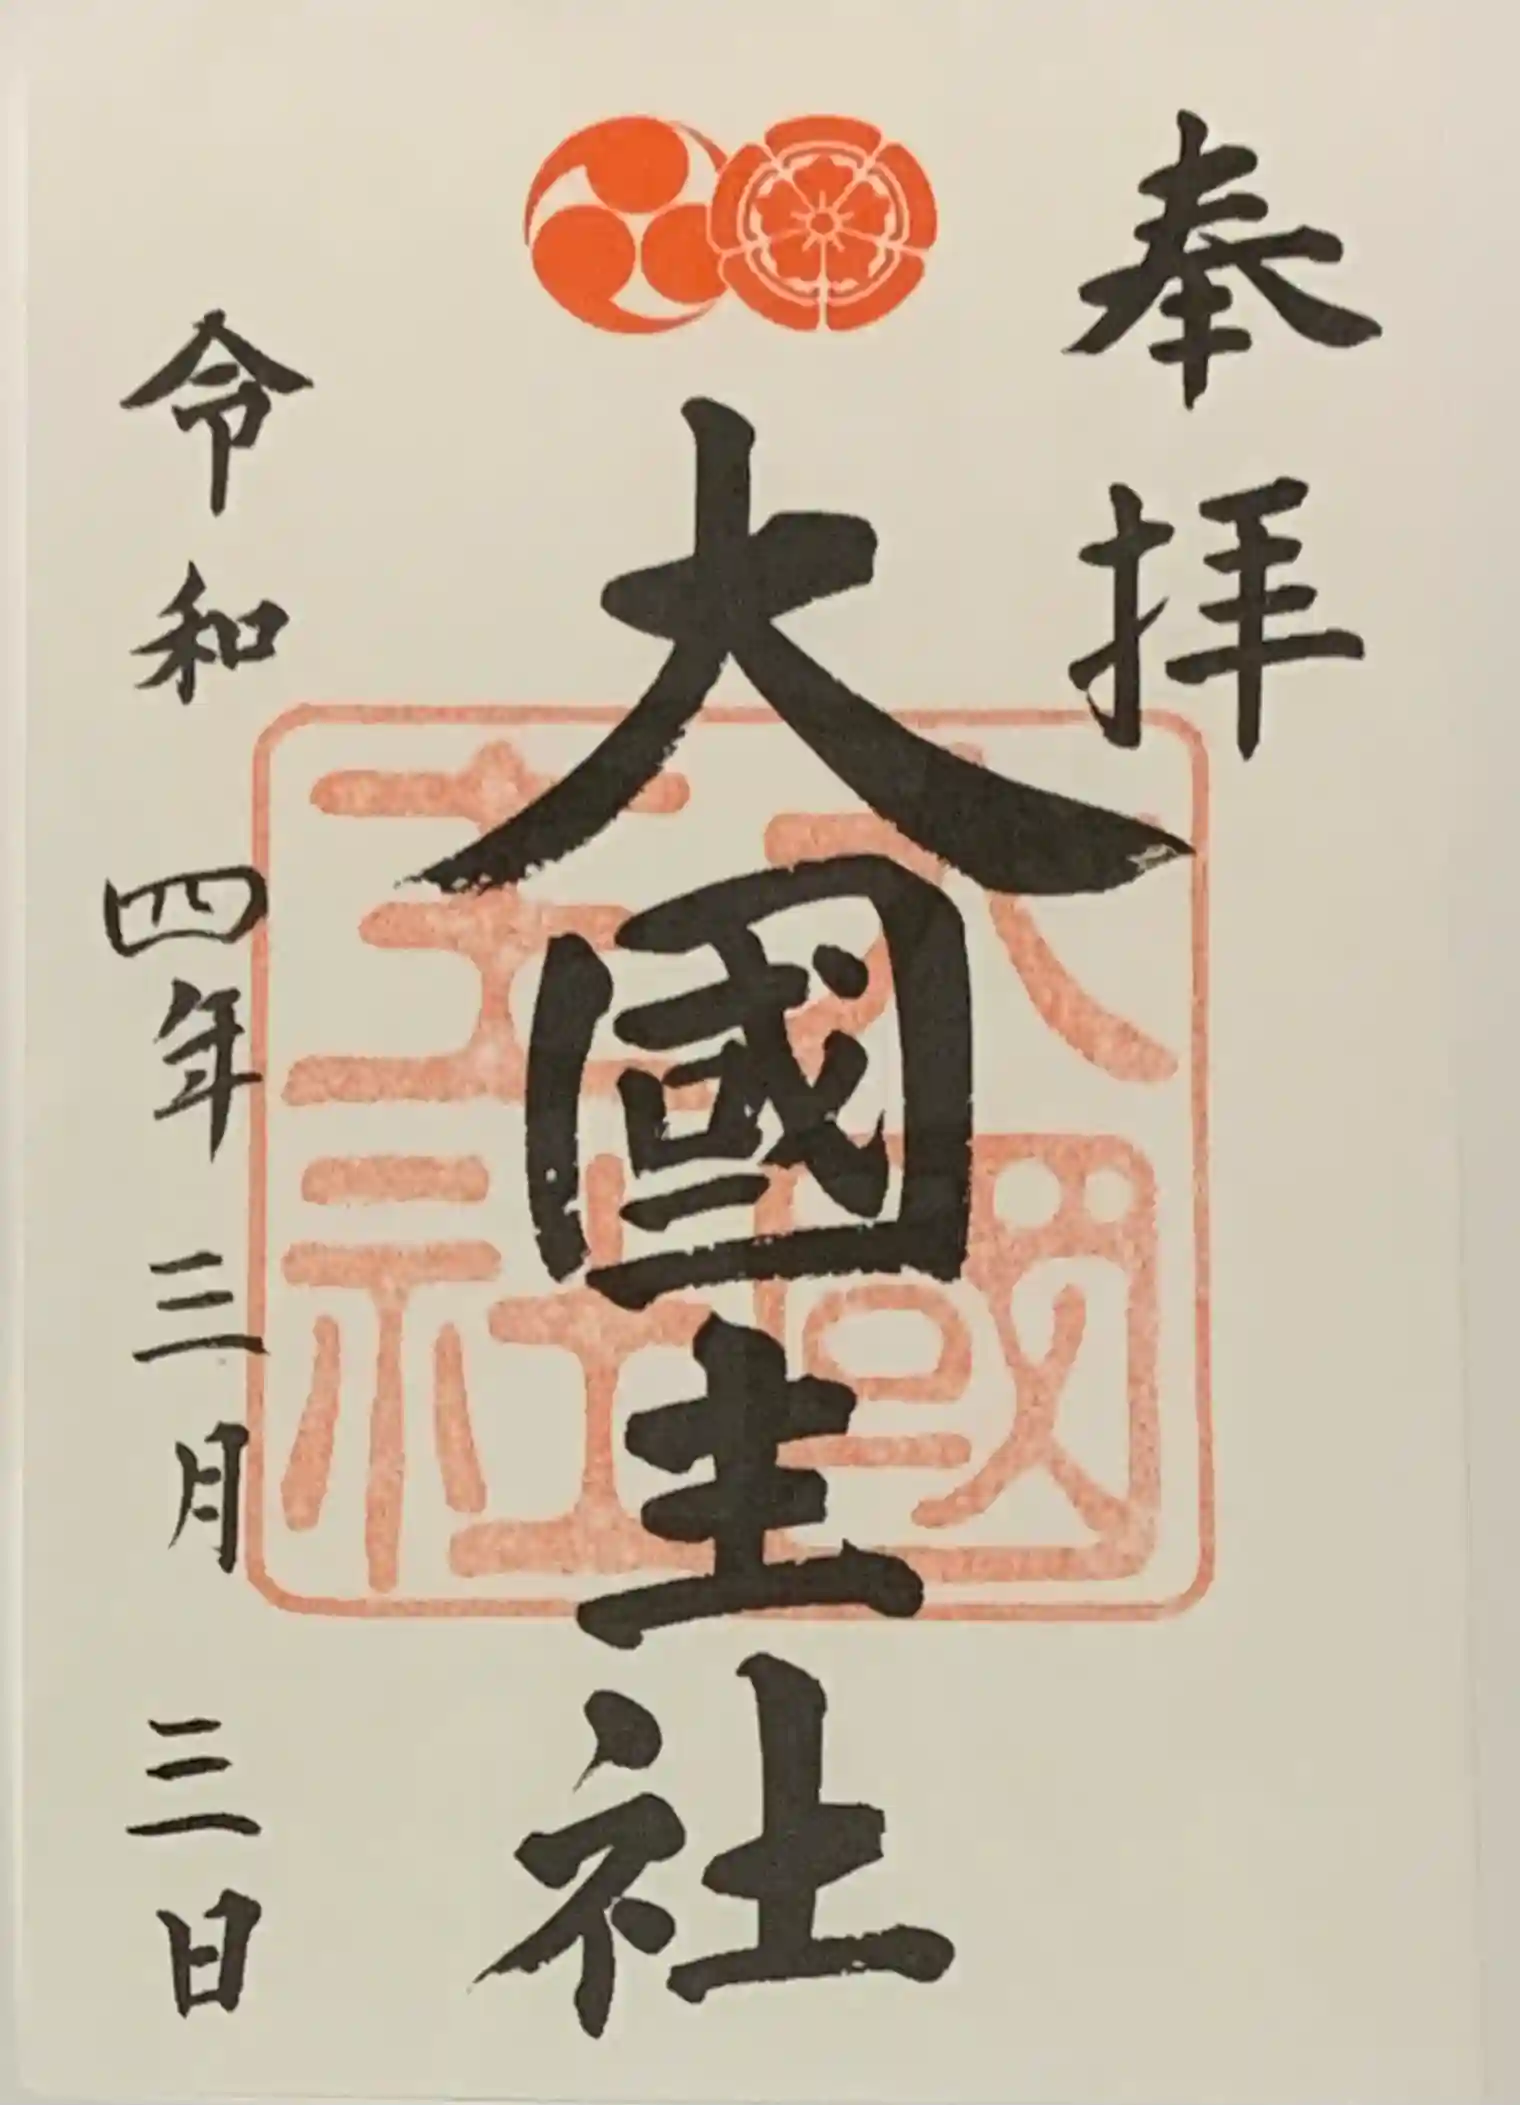 奉拝
大國主社
大國主社
令和四年三月三日